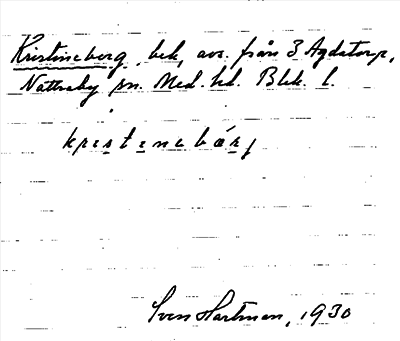 Kristineberg, bek, avs. från 3 Agdatorp,
Nättraby sn. Med. hd. Blek. l.
kristinebärj
Sven Hartman, 1930